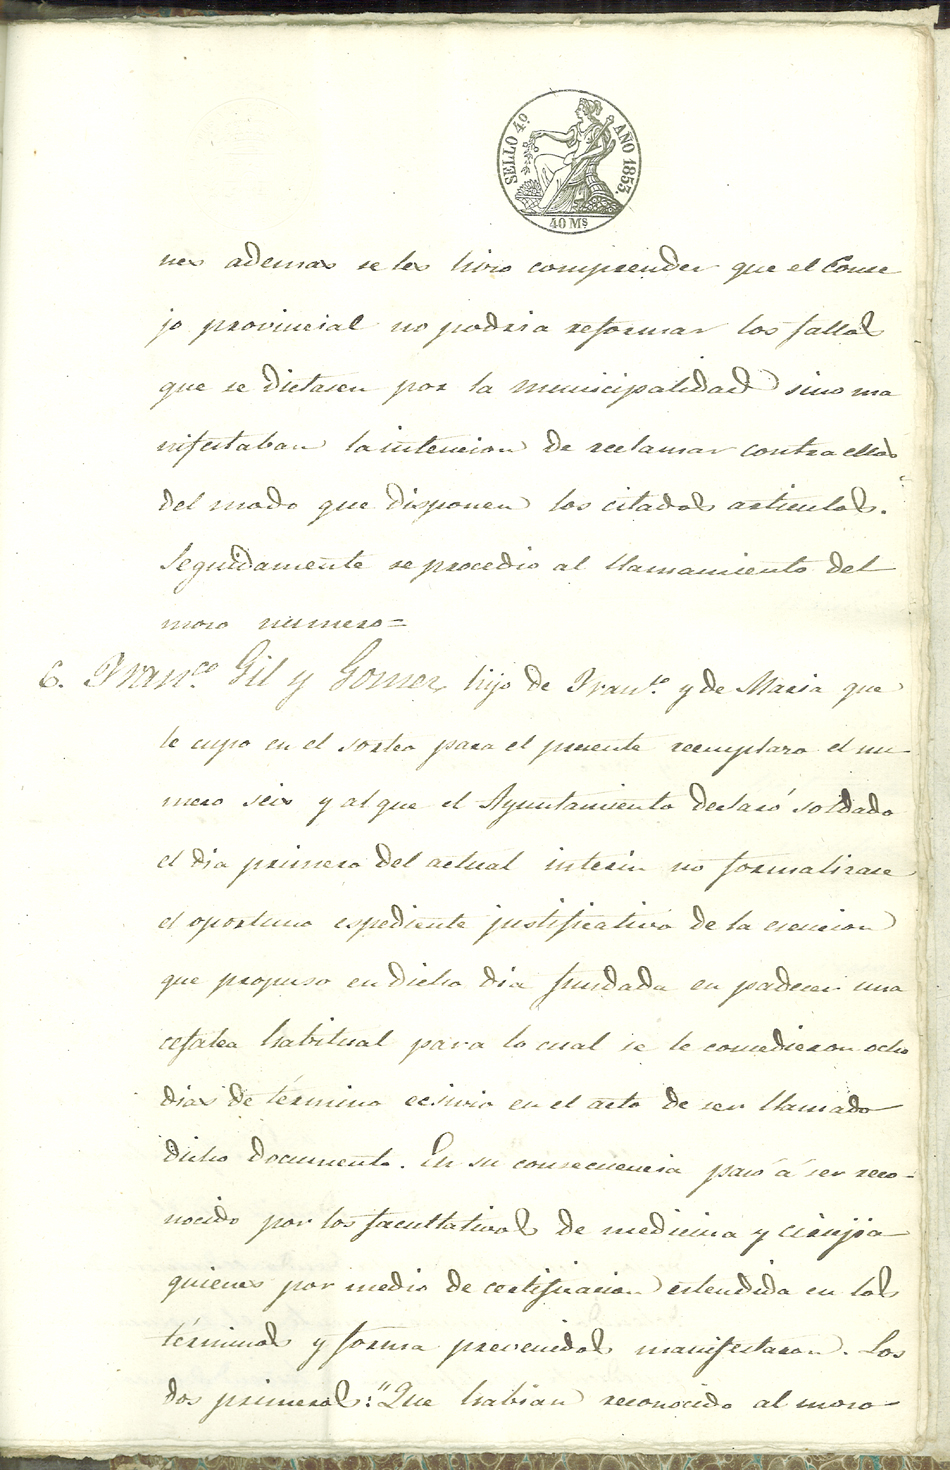 SELLO 4.º AÑO 1853.
40 Ms
nes ademas se les hizo comprender que el Conse
jo provincial no podria reformar los fallos
que se dictasen por la municipalidad sino ma
nifestaban la intencion de reclamar contra ellos
del modo que disponen los citados articulos.
Seguidamente se procedio al llamamiento del
mozo numero=
6. Fran.co Gil y Gomez, hijo de Fran.co y de Maria que
le cupo en el sorteo para el presente reemplazo el nu-
mero seis y al que el Ayuntamiento declaró soldado
el dia primero del actual interin no formalizase
el oportuno espediente justificativo de la esencion
que propuso en dicho dia fundada en padecer una
cefalea habitual para lo cual se le concedieron ocho
dias de término en el acto de ser llamado
dicho documento. En su consecuencia pasó á ser reco-
nocido por los facultativos de medicina y cirujia
quienes por medio de certificacion estendida en los
términos y forma prevenidos manifestaron. Los
dos primeros: "Que habian reconocido al mozo